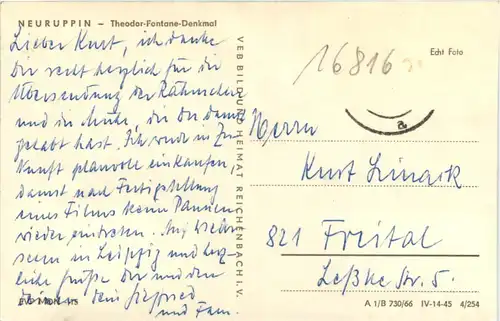 NEURUPPIN – Theodor-Fontane-Denkmal
Lieber Kurt, ich danke
Dir recht herzlich für die
Übersendung der Rähmchen
und die Mühe, die Du damit
gehabt hast. Ich werde in Zu-
kunft planvoll einkaufen,
damit nach Fertigstellung
eines Films keine Pannen
wieder eintreten. Auf Wieder-
sehen in Leipzig und herz-
liche Grüße Dir und den
Deinen Dein Siegfried
und Fam.
EVP MDN
VEB BILD UND HEIMAT REICHENBACH I. V.
16816
Echt Foto
a
Herrn
Kurt
821 Freital
Leßke Str. 5.
A 1/B 730/66 IV-14-45 4/254